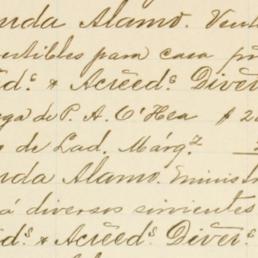 nda Alamo. Vent
estibles para casa pr
éd.s & Acréed.s Diver
ega de P. A. O'Hea $ 2
o de Lad. Márq.z
nda Alamo. Suministr
á diversos sirvientes
éd.s & Acréed.s Diver.s